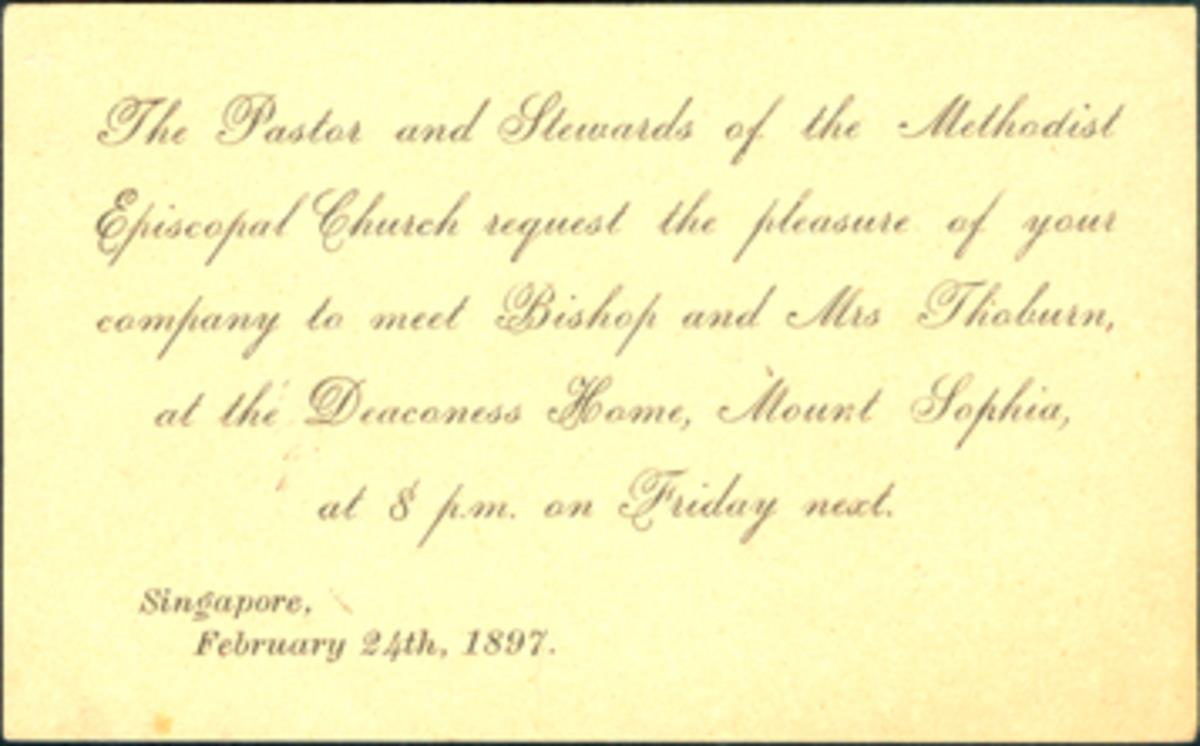 The Pastor and Stewards of the Methodist
Episcopal Church request the pleasure of your
company to meet Bishop and Mrs Thoburn,
at the Deaconess Home, Mount Sophia,
at 8 p.m. on Friday next.
Singapore,
February 24th, 1897.